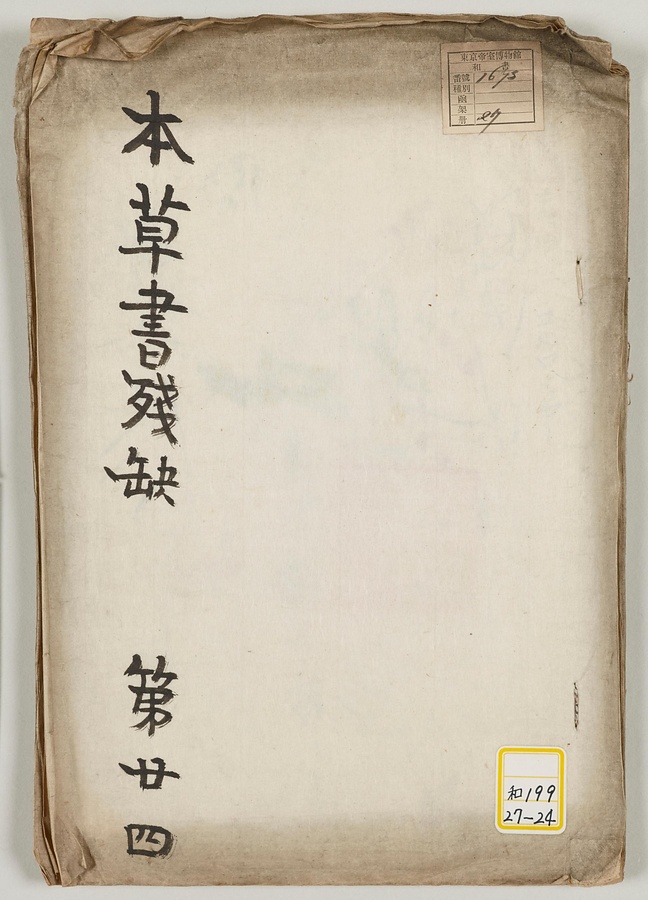 本草書残缺 第廿四
東京帝室博物館
和 書
番號 1675
種別
凾
架
冊 27
和199
27-24